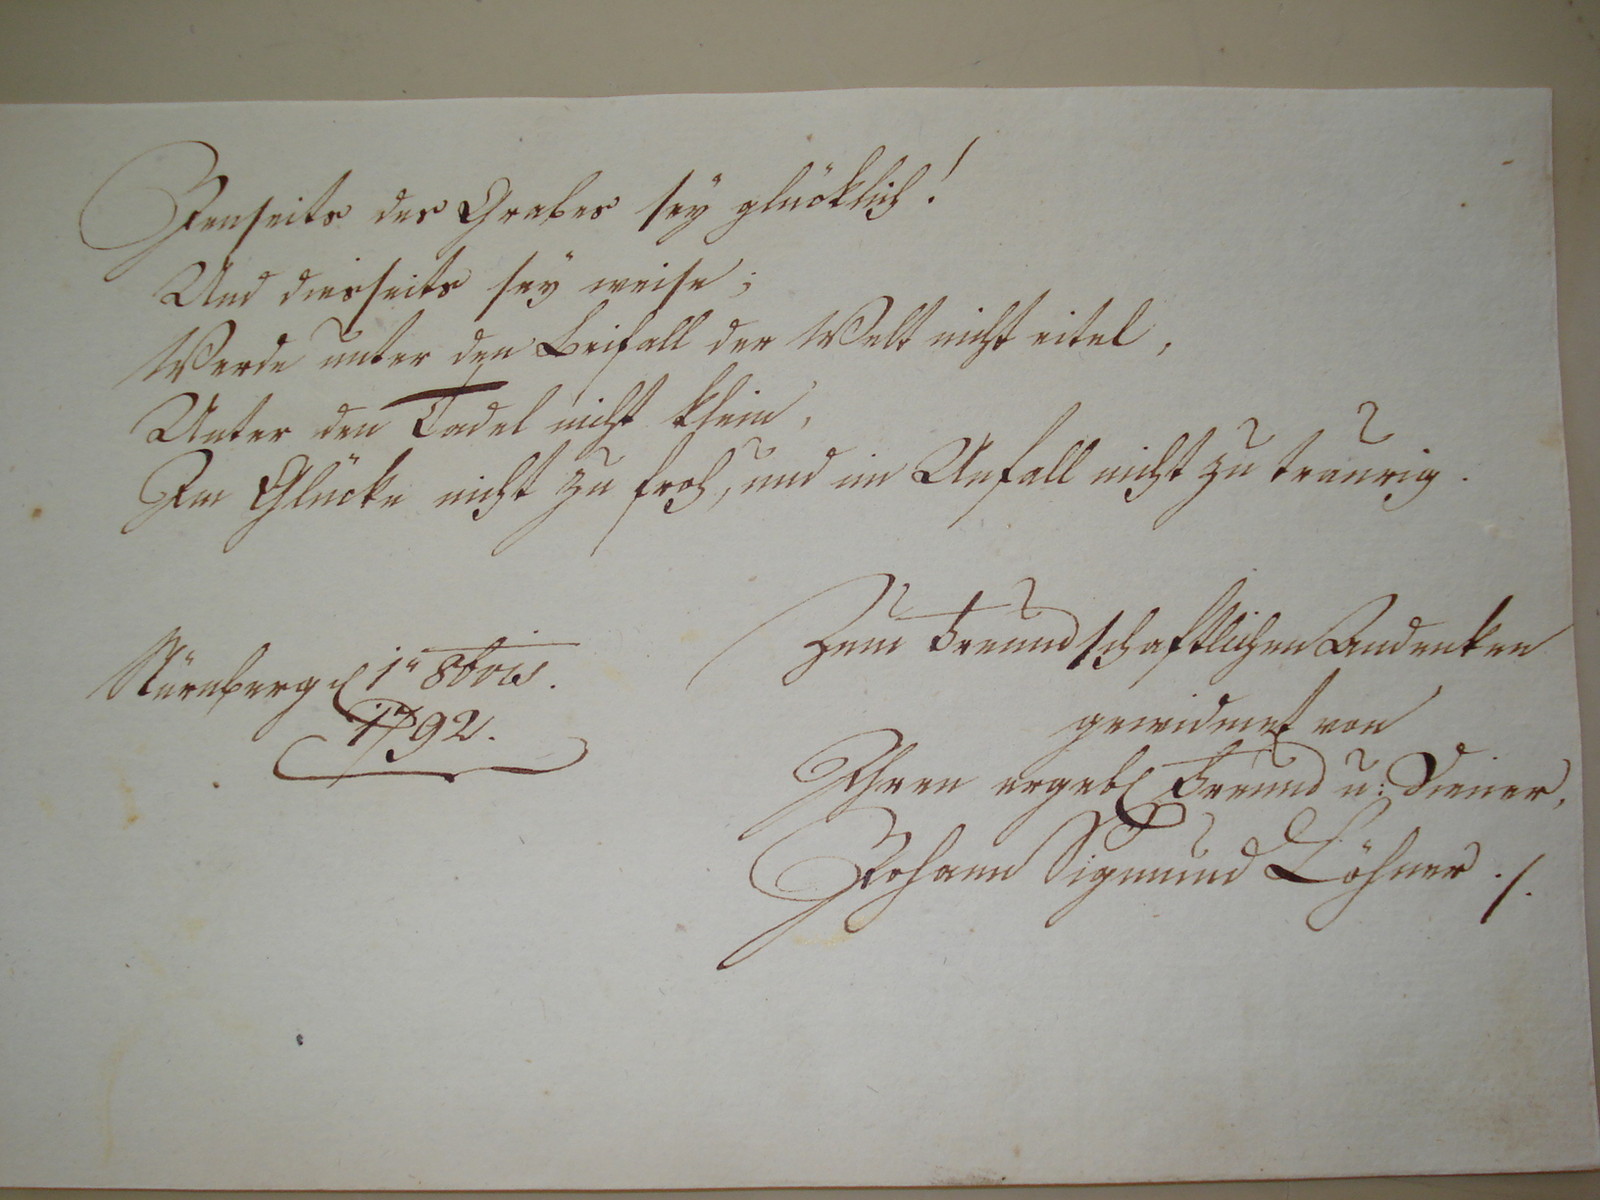 Jenseits des Grabes sey glücklich!
Und diesseits sey weise;
Werde unter den Beifall der Welt nicht eitel,
Unter den Tadel nicht klein,
Im Glücke nicht zu froh, und im Unfall nicht zu traurig.
Zum Freundschaftlichen Andenken
gewidmet von
Ihren ergeb. Freund u: Diener,
Johann Sigmund Löhner ./.
Nürnberg d 1" 8bris.
1792.